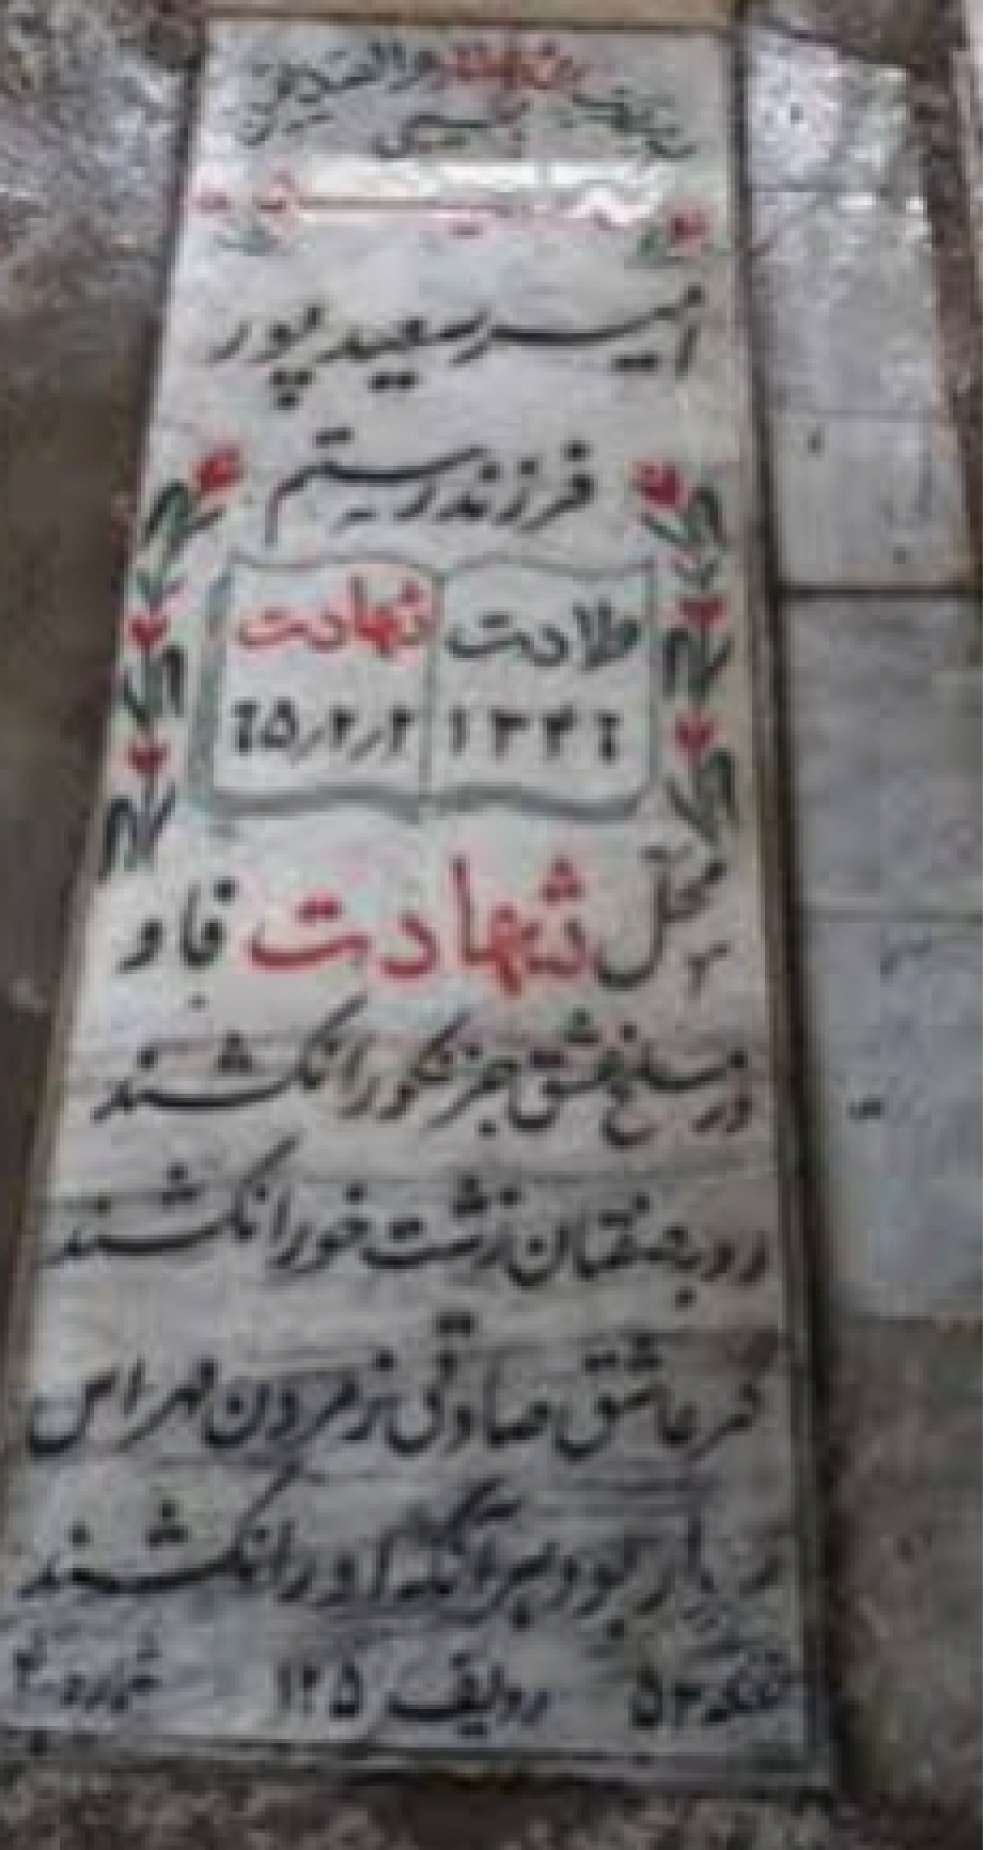 الشهداء والصدیقین
امیر سعید پور
فرزند رستم
ولادت شهادت
۱۳۴۶ ۶۵/۲/۲
محل شهادت فاو
در مسلخ عشق جز نکو را نکشند
روبه صفتان زشت خو را نکشند
گر عاشق صادقی ز مردن مهراس
مردار بود هر آنکه او را نکشند
قطعه ۵۳ ردیف ۱۲۵ شماره